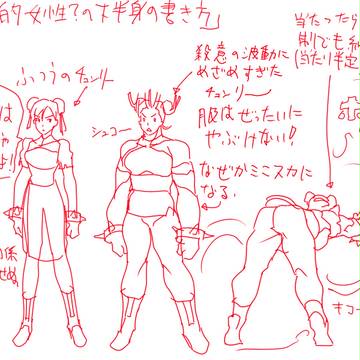 的女性?の下半身の書き方」
ふつうのチュンリー
殺意の波動に
めざめすぎた
チュンリー
服はぜったいに
やぶけない!
なぜかミニスカに
なる。
シュコー
当たったら
制でも
(当たり判定
は
よ!
係
キコー